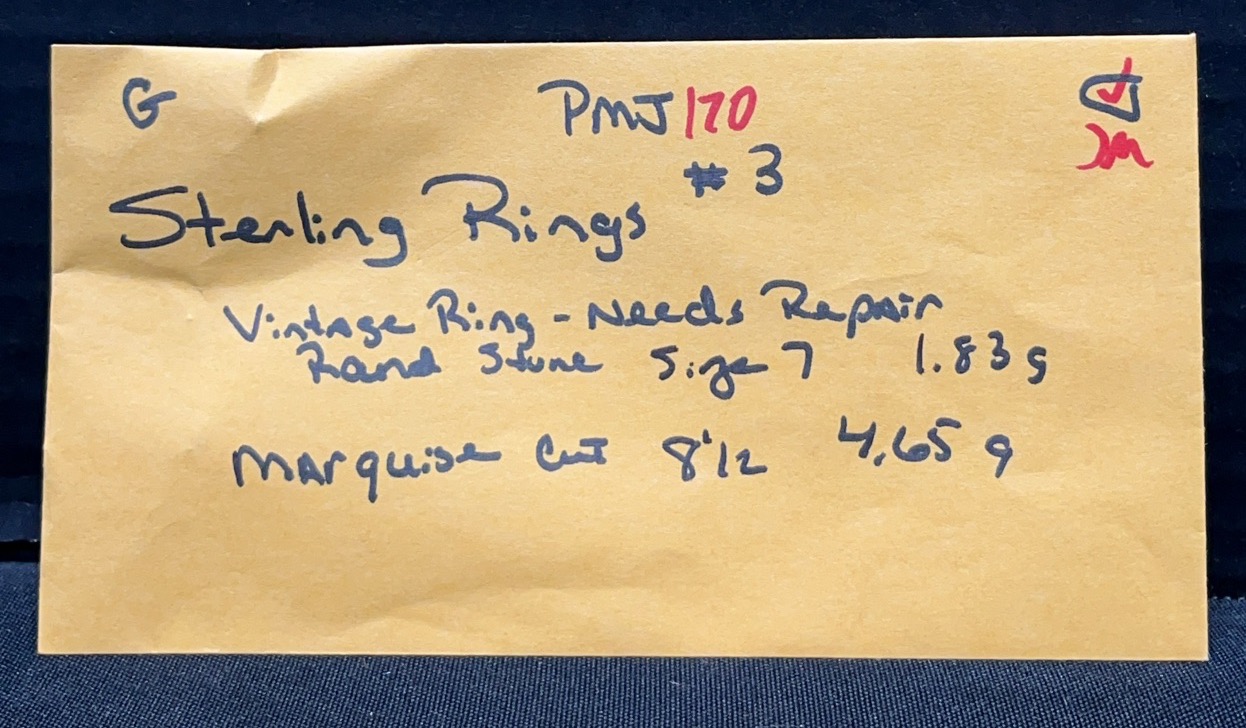 G PMJ 170
#3
Sterling Rings
Vintage Ring - Needs Repair
Stone Size 7 1.83 g
Marquise Cut 8 1/2 4.65 g